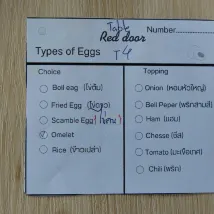 Table
Number..........
Red door
Types of Eggs T4
Choice
Boil eag (ไข่ต้ม)
Fried Egg (ไข่ดาว)
Scamble Egg (ไข่คน)
Omelet
Rice (ข้าวเปล่า)
Topping
Onion (หอมหัวใหญ่)
Bell Peper (พริกสามสี)
Ham (แฮม)
Chesse (ชีส)
Tomato (มะเขือเทศ)
Chili (พริก)